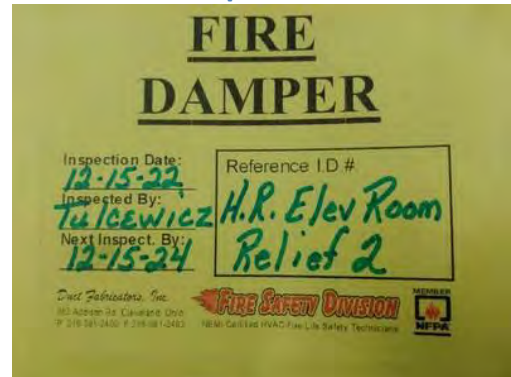 FIRE
DAMPER
Inspection Date:
12-15-22
Inspected By:
Tulcewicz
Next Inspect. By:
12-15-24
Reference I.D #
H.R. Elev Room
Relief 2
Duct Fabricators, Inc.
Cleveland, Ohio
FIRE SAFETY DIVISION
NEMI Certified HVAC Fire Life Safety Technicians
MEMBER
NFPA